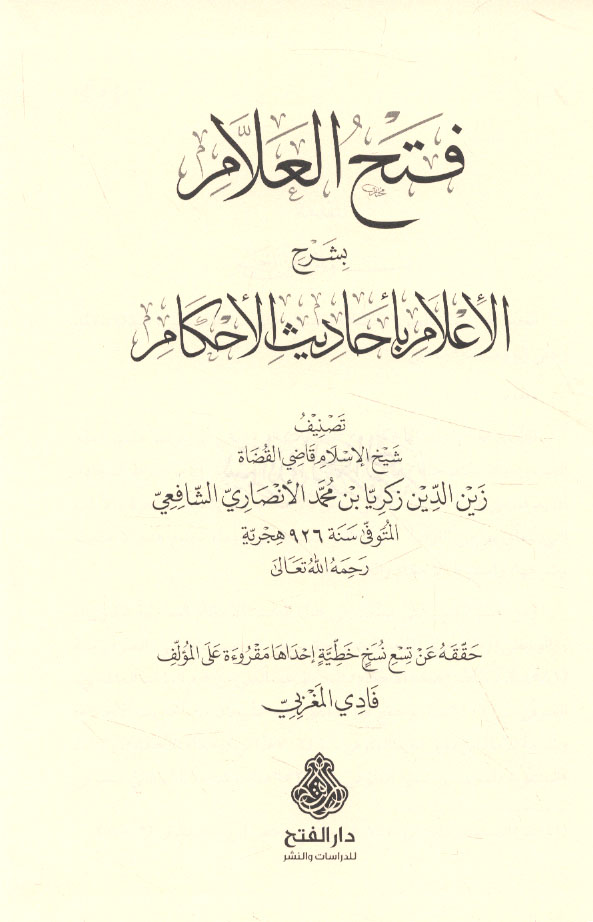 فَتْحُ العَلَّامِ
بِشَرْحِ
الإِعْلَامِ بِأَحَادِيثِ الأَحْكَامِ
تَصْنِيفُ
شَيْخِ الإِسْلَامِ قَاضِي القُضَاة
زَيْنِ الدِّيْنِ زَكَرِيَّا بْنِ مُحَمَّد الأَنْصَارِيّ الشَّافِعِيّ
المُتَوفَّى سَنَة ٩٢٦ هِجْرِيّة
رَحِمَهُ اللهُ تَعَالَى
حَقَّقَهُ عَنْ تِسْعِ نُسَخٍ خَطِّيَّةٍ إِحْدَاهَا مَقْرُوءَة عَلَى المُؤَلِّف
فَادِي المَغْرِبِيّ
دار الفتح
للدراسات والنشر